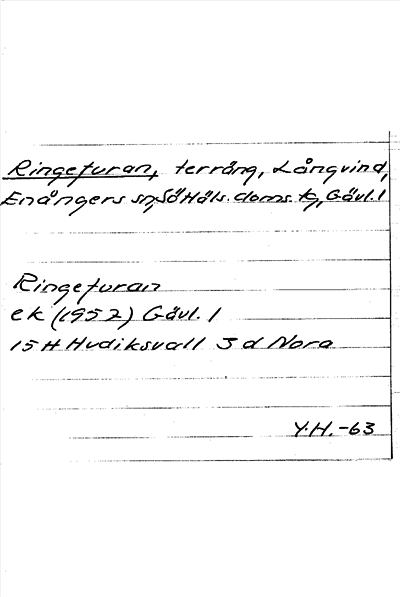 Ringefuran, terräng, Långvind,
Enångers sn, SöHäls. doms. tg, Gävl. l
Ringefuran
ek (1952) Gävl. l
15 H Hudiksvall 3 d Nora
Y.H.-63